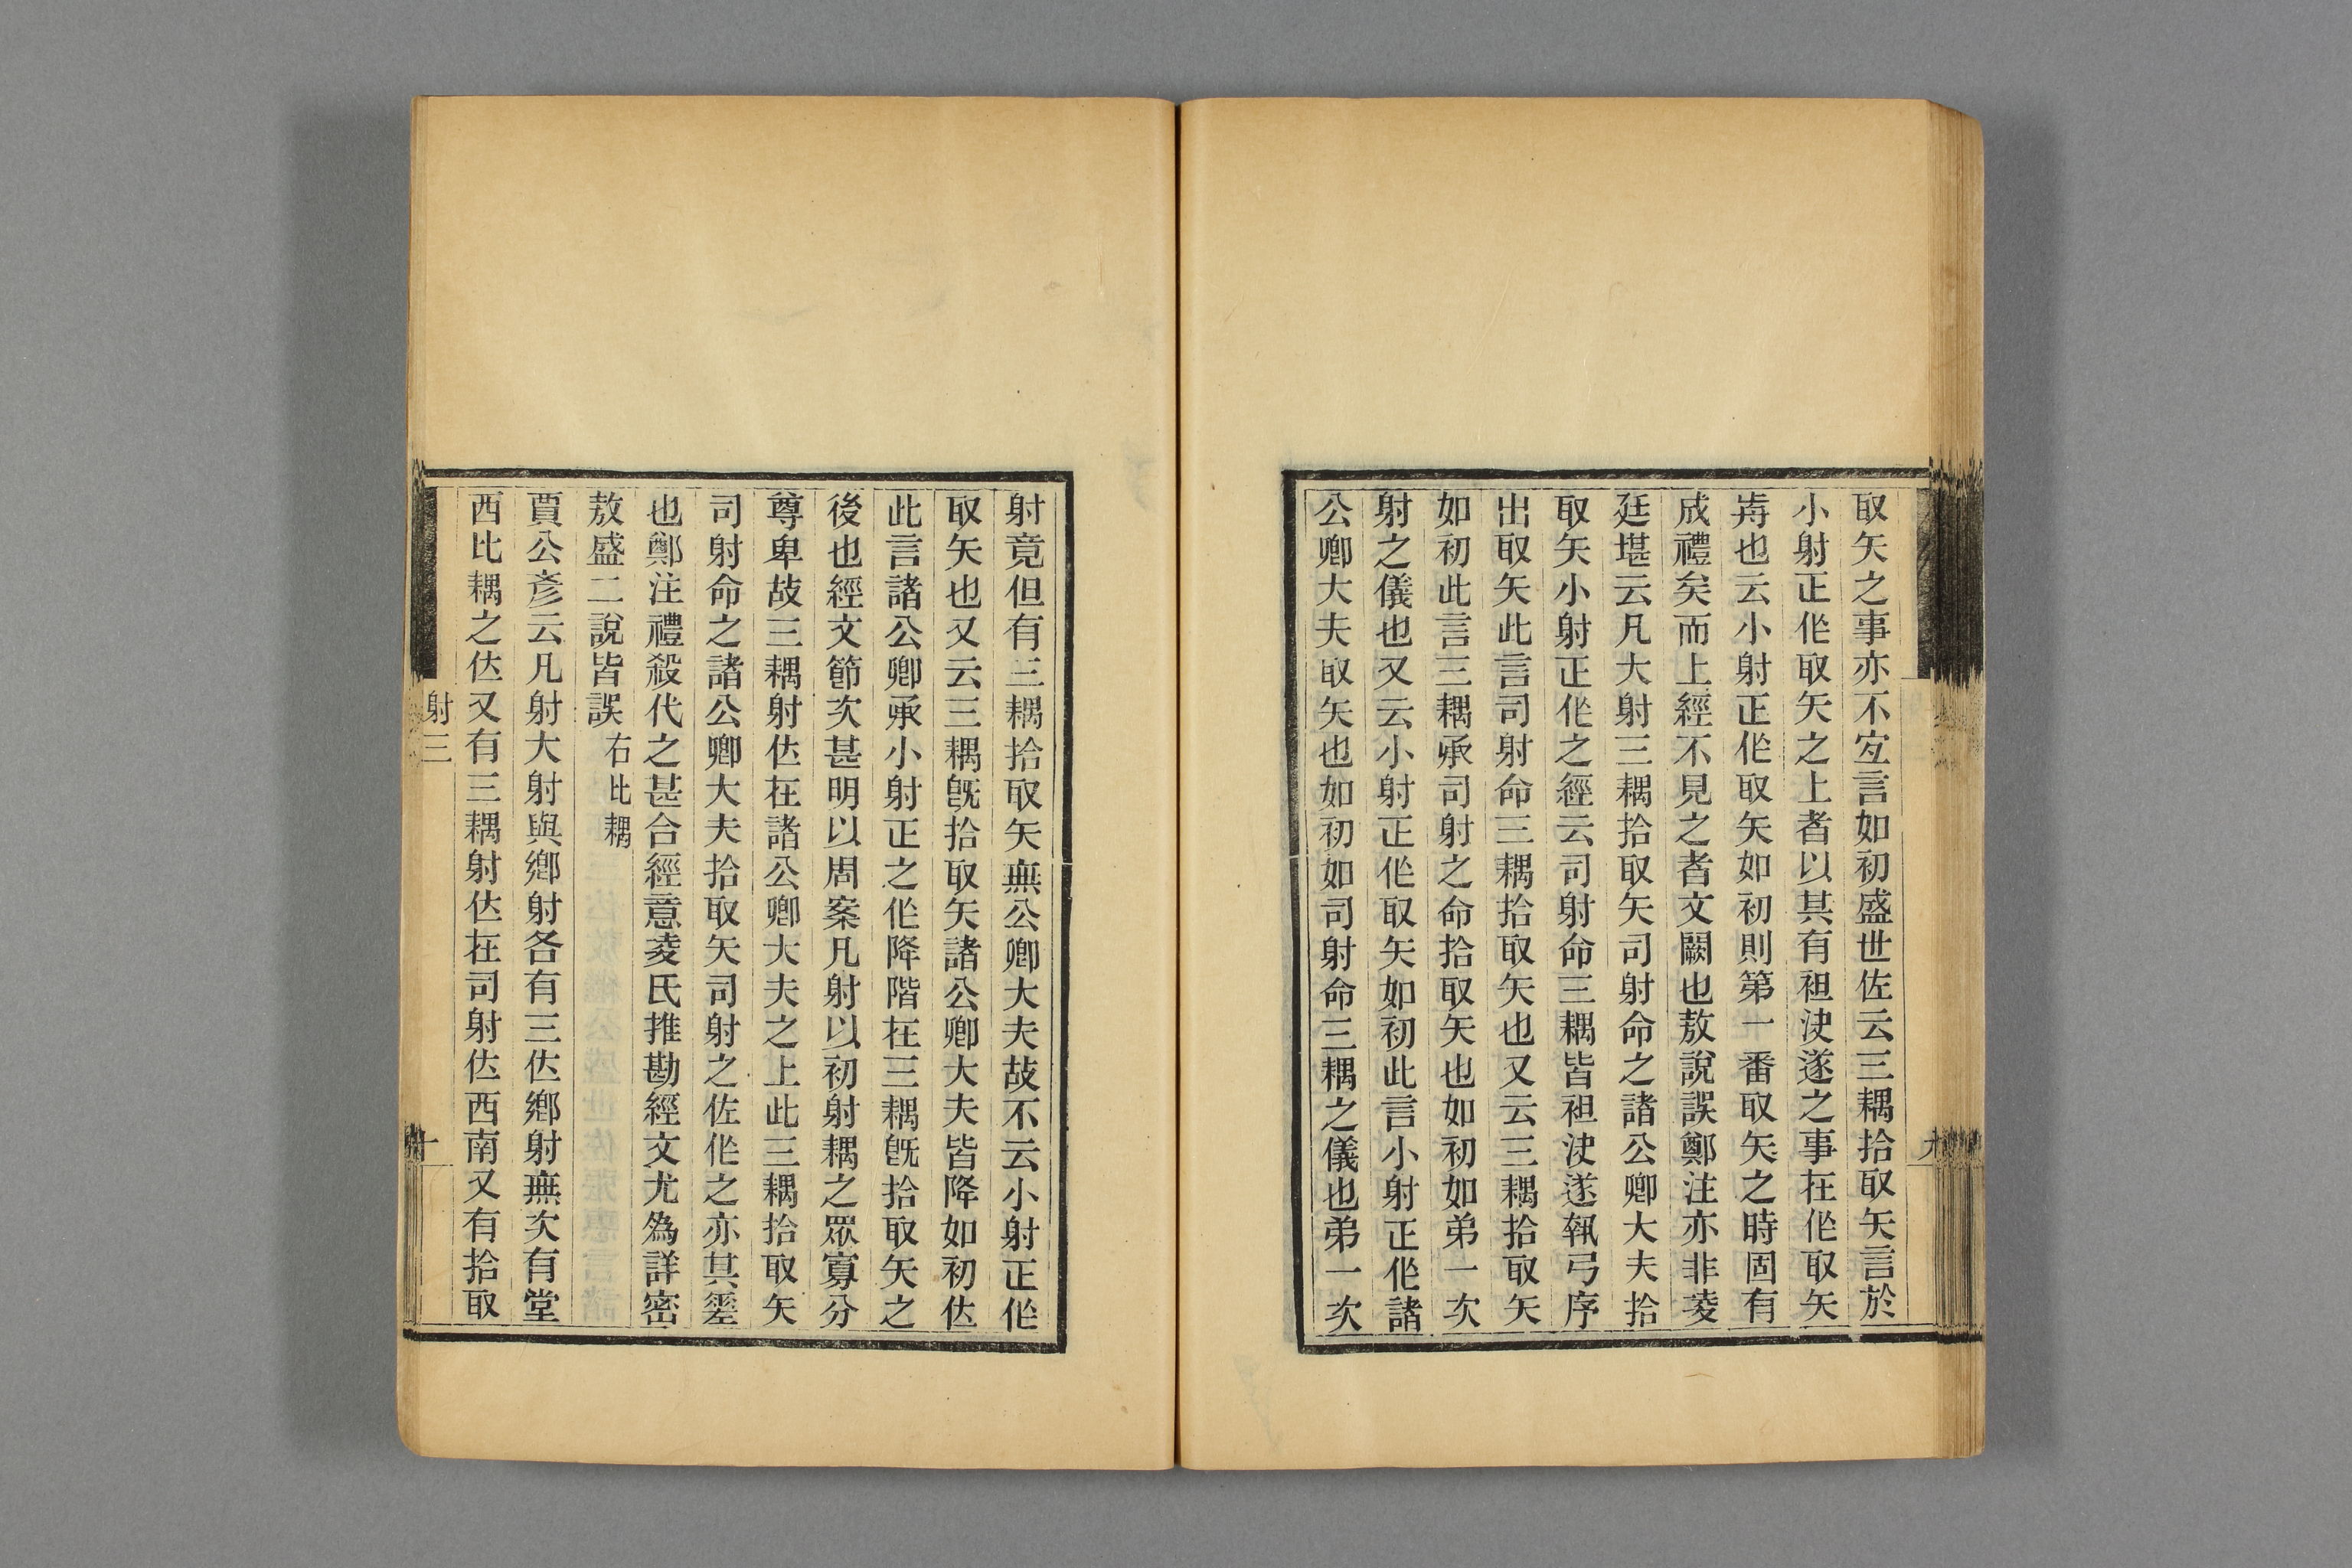 取矢之事亦不宜言如初盛世佐云三耦拾取矢言於
小射正作取矢之上者以其有袒決遂之事在作取矢
歬也云小射正作取矢如初則第一番取矢之時固有
成禮矣而上經不見之者文闕也敖說誤鄭注亦非淩
廷堪云凡大射三耦拾取矢司射命之諸公卿大夫拾
取矢小射正作之經云司射命三耦皆袒決遂執弓序
出取矢此言司射命三耦拾取矢也又云三耦拾取矢
如初此言三耦承司射之命拾取矢也如初如弟一次
射之儀也又云小射正作取矢如初此言小射正作諸
公卿大夫取矢也如初如司射命三耦之儀也弟一次
射竟但有三耦拾取矢無公卿大夫故不云小射正作
取矢也又云三耦旣拾取矢諸公卿大夫皆降如初位
此言諸公卿承小射正之作降階在三耦旣拾取矢之
後也經文節次甚明以周案凡射以初射耦之眾寡分
尊卑故三耦射位在諸公卿大夫之上此三耦拾取矢
司射命之諸公卿大夫拾取矢司射之佐作之亦其差
也鄭注禮殺代之甚合經意淩氏推勘經文尤爲詳密
敖盛二說皆誤 右比耦
賈公彥云凡射大射與鄉射各有三位鄉射無次有堂
西比耦之位又有三耦射位在司射位西南又有拾取
射三
十